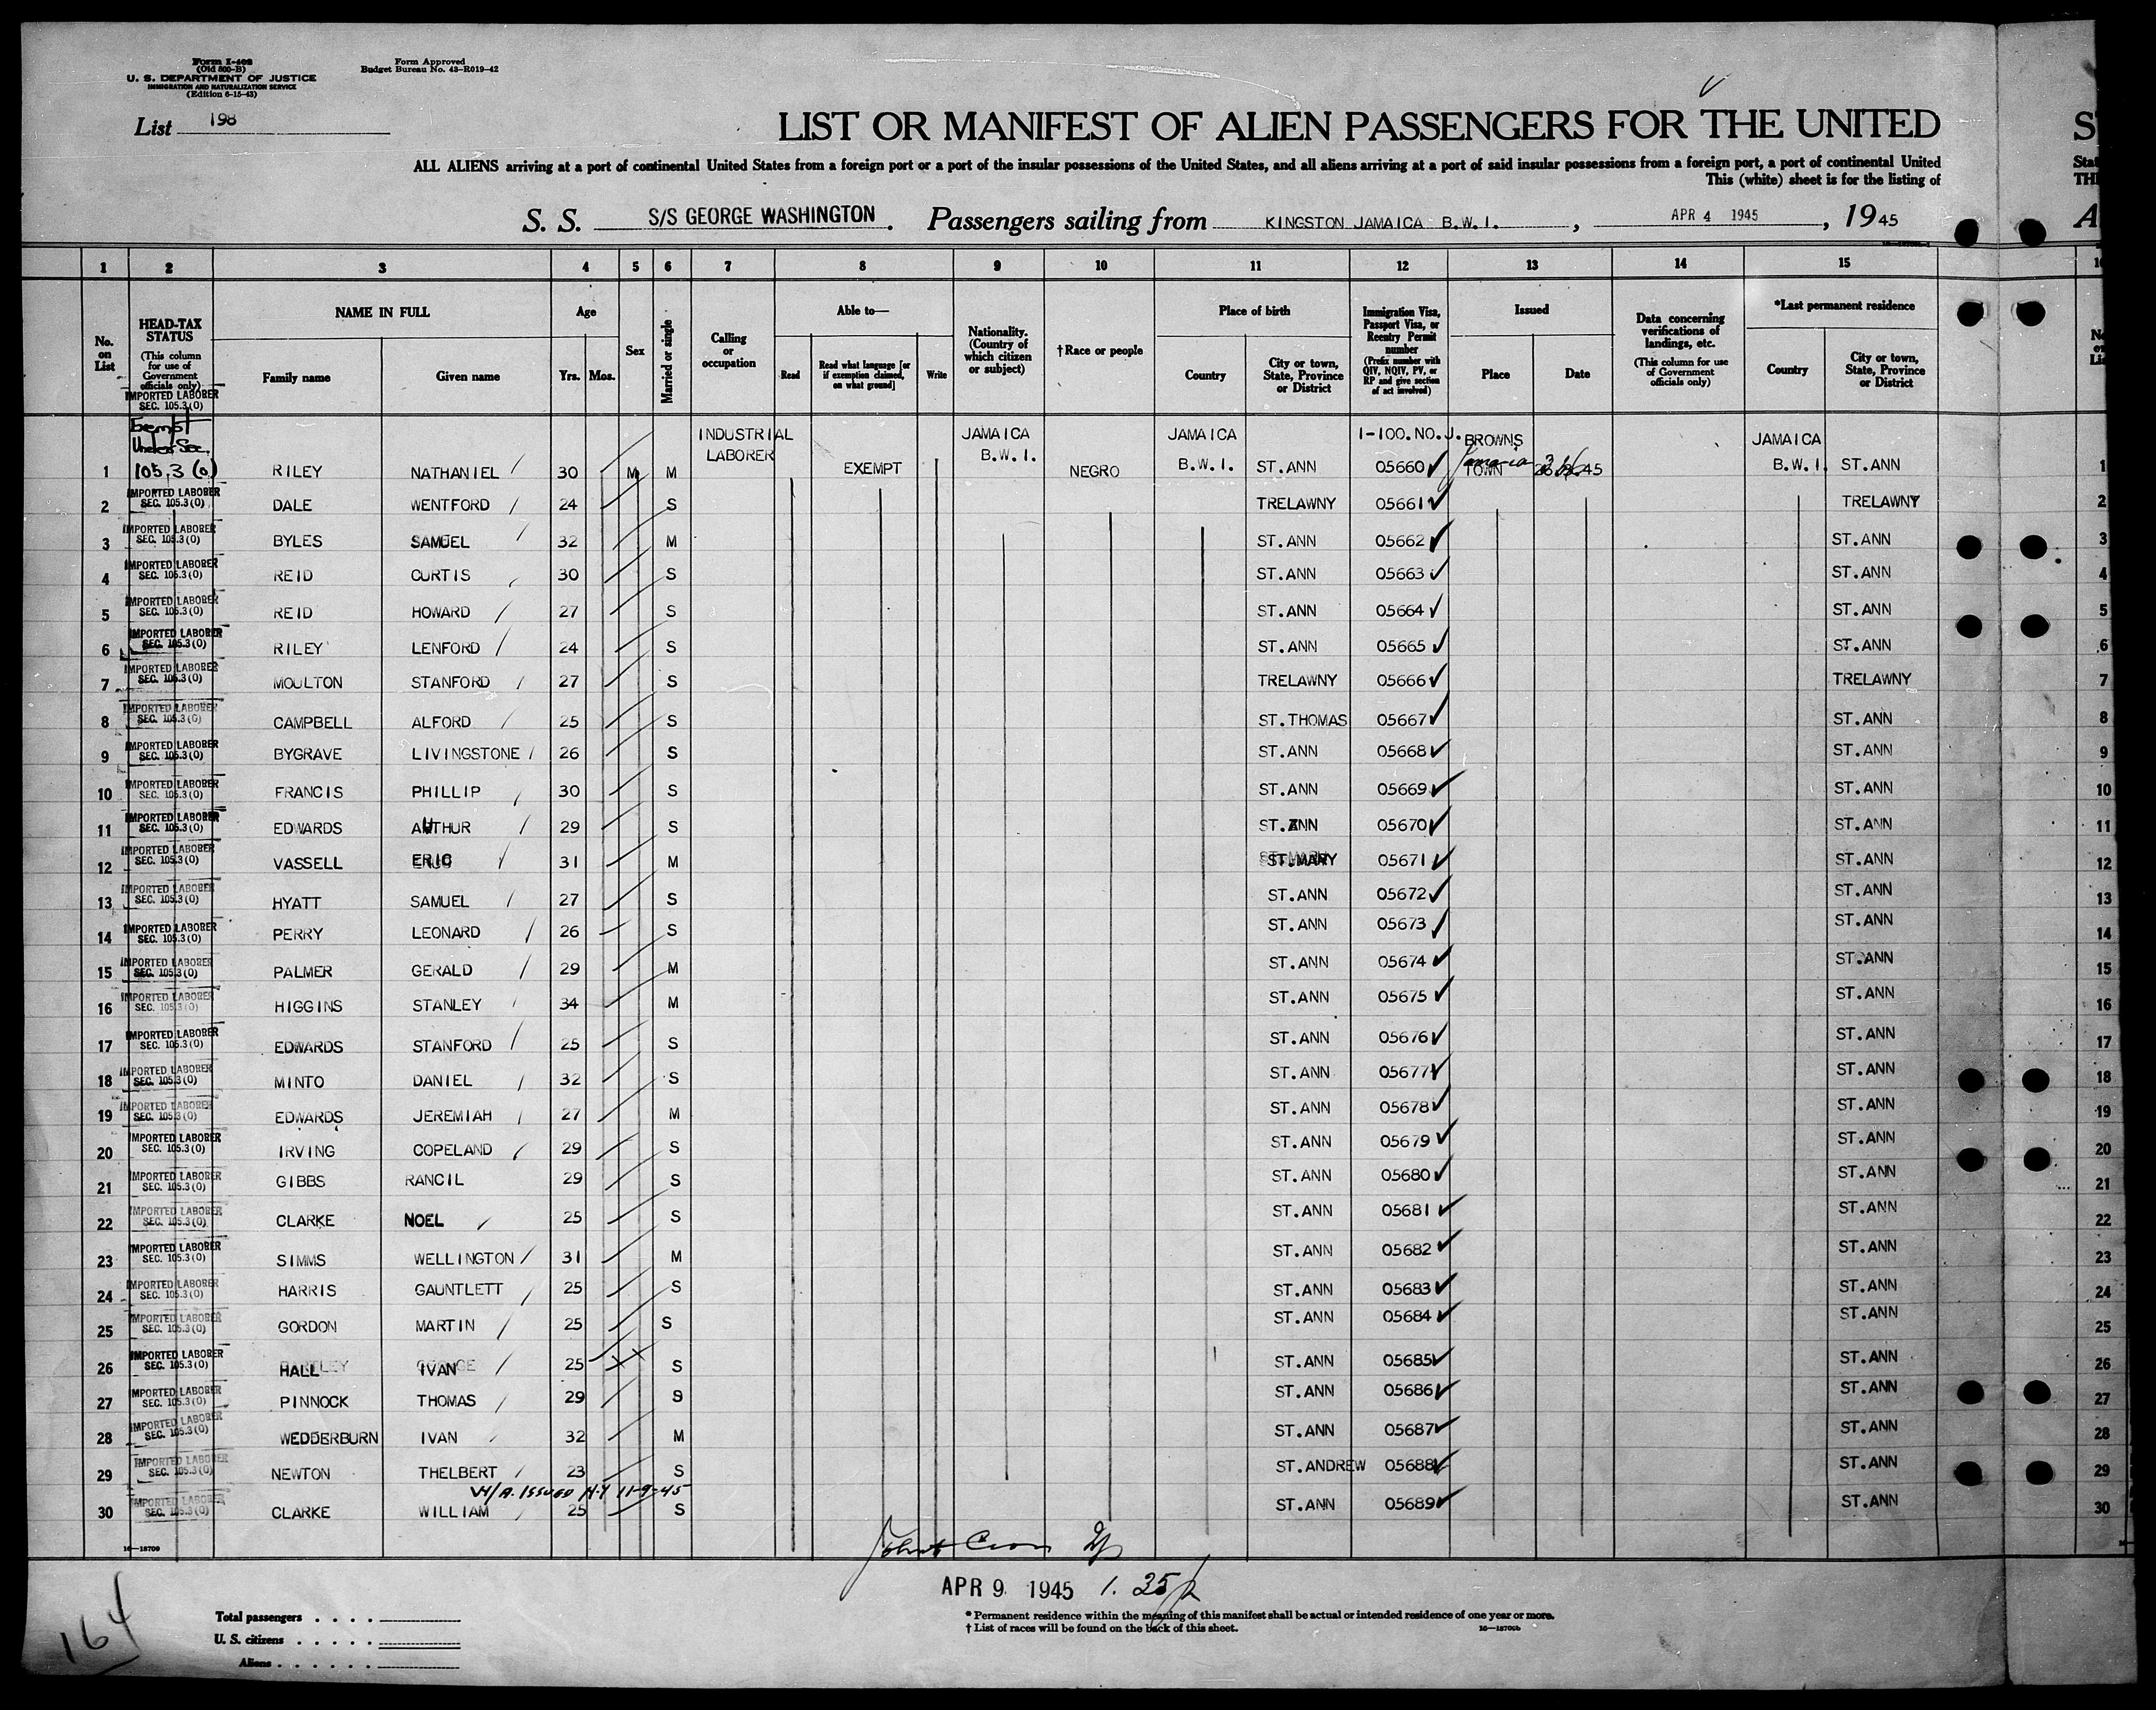 Form I-402
(Old 500-B)
U. S. DEPARTMENT OF JUSTICE
IMMIGRATION AND NATURALIZATION SERVICE
(Edition 6-15-43)
Form Approved
Budget Bureau No. 43-R019-42
List 198
LIST OR MANIFEST OF ALIEN PASSENGERS FOR THE UNITED
ALL ALIENS arriving at a port of continental United States from a foreign port or a port of the insular possessions of the United States, and all aliens arriving at a port of said insular possessions from a foreign port, a port of continental United
This (white) sheet is for the listing of
S. S. S/S GEORGE WASHINGTON. Passengers sailing from KINGSTON JAMAICA B.W.I., APR 4 1945, 1945
1 2 3 4 5 6 7 8 9 10 11 12 13 14 15
No. on List
HEAD-TAX STATUS
(This column for use of Government officials only)
NAME IN FULL
Family name
Given name
Age
Yrs. Mos.
Sex
Married or single
Calling or occupation
Able to—
Read
Read what language [or if exemption claimed, on what ground]
Write
Nationality. (Country of which citizen or subject)
†Race or people
Place of birth
Country
City or town, State, Province or District
Immigration Visa, Passport Visa, or Reentry Permit number
(Prefix number with QIV, NQIV, PV, or RP and give section of act involved)
Issued
Place
Date
Data concerning verifications of landings, etc.
(This column for use of Government officials only)
*Last permanent residence
Country
City or town, State, Province or District
IMPORTED LABORER
SEC. 105.3(0)
Exempt
Under Sec.
INDUSTRIAL JAMAICA JAMAICA 1-100.NO.J. BROWNS JAMAICA
LABORER B.W.I. B.W.I. Jamaica B.W.I.
1 105.3 (0) RILEY NATHANIEL 30 M M EXEMPT NEGRO ST.ANN 05660 TOWN ST.ANN 1
2 IMPORTED LABORER SEC. 105.3(0) DALE WENTFORD 24 S TRELAWNY 05661 TRELAWNY 2
3 IMPORTED LABORER SEC. 105.3(0) BYLES SAMUEL 32 M ST.ANN 05662 ST.ANN 3
4 IMPORTED LABORER SEC. 105.3(0) REID CURTIS 30 S ST.ANN 05663 ST.ANN 4
5 IMPORTED LABORER SEC. 105.3(0) REID HOWARD 27 S ST.ANN 05664 ST.ANN 5
6 IMPORTED LABORER SEC. 105.3(0) RILEY LENFORD 24 S ST.ANN 05665 ST.ANN 6
7 IMPORTED LABORER SEC. 105.3(0) MOULTON STANFORD 27 S TRELAWNY 05666 TRELAWNY 7
8 IMPORTED LABORER SEC. 105.3(0) CAMPBELL ALFORD 25 S ST.THOMAS 05667 ST.ANN 8
9 IMPORTED LABORER SEC. 105.3(0) BYGRAVE LIVINGSTONE 26 S ST.ANN 05668 ST.ANN 9
10 IMPORTED LABORER SEC. 105.3(0) FRANCIS PHILLIP 30 S ST.ANN 05669 ST.ANN 10
11 IMPORTED LABORER SEC. 105.3(0) EDWARDS AUTHUR 29 S ST.ANN 05670 ST.ANN 11
12 IMPORTED LABORER SEC. 105.3(0) VASSELL ERIC 31 M ST.MARY 05671 ST.ANN 12
13 IMPORTED LABORER SEC. 105.3(0) HYATT SAMUEL 27 S ST.ANN 05672 ST.ANN 13
14 IMPORTED LABORER SEC. 105.3(0) PERRY LEONARD 26 S ST.ANN 05673 ST.ANN 14
15 IMPORTED LABORER SEC. 105.3(0) PALMER GERALD 29 M ST.ANN 05674 ST.ANN 15
16 IMPORTED LABORER SEC. 105.3(0) HIGGINS STANLEY 34 M ST.ANN 05675 ST.ANN 16
17 IMPORTED LABORER SEC. 105.3(0) EDWARDS STANFORD 25 S ST.ANN 05676 ST.ANN 17
18 IMPORTED LABORER SEC. 105.3(0) MINTO DANIEL 32 S ST.ANN 05677 ST.ANN 18
19 IMPORTED LABORER SEC. 105.3(0) EDWARDS JEREMIAH 27 M ST.ANN 05678 ST.ANN 19
20 IMPORTED LABORER SEC. 105.3(0) IRVING COPELAND 29 S ST.ANN 05679 ST.ANN 20
21 IMPORTED LABORER SEC. 105.3(0) GIBBS RANCIL 29 S ST.ANN 05680 ST.ANN 21
22 IMPORTED LABORER SEC. 105.3(0) CLARKE NOEL 25 S ST.ANN 05681 ST.ANN 22
23 IMPORTED LABORER SEC. 105.3(0) SIMMS WELLINGTON 31 M ST.ANN 05682 ST.ANN 23
24 IMPORTED LABORER SEC. 105.3(0) HARRIS GAUNTLETT 25 S ST.ANN 05683 ST.ANN 24
25 IMPORTED LABORER SEC. 105.3(0) GORDON MARTIN 25 S ST.ANN 05684 ST.ANN 25
26 IMPORTED LABORER SEC. 105.3(0) HALL IVAN 25 S ST.ANN 05685 ST.ANN 26
27 IMPORTED LABORER SEC. 105.3(0) PINNOCK THOMAS 29 S ST.ANN 05686 ST.ANN 27
28 IMPORTED LABORER SEC. 105.3(0) WEDDERBURN IVAN 32 M ST.ANN 05687 ST.ANN 28
29 IMPORTED LABORER SEC. 105.3(0) NEWTON THELBERT 23 S ST.ANDREW 05688 ST.ANN 29
V/A. ISSUED N.Y 11-9-45
30 IMPORTED LABORER SEC. 105.3(0) CLARKE WILLIAM 25 S ST.ANN 05689 ST.ANN 30
16—18700
APR 9 1945 1.35
164
Total passengers
U. S. citizens
Aliens
* Permanent residence within the meaning of this manifest shall be actual or intended residence of one year or more.
† List of races will be found on the back of this sheet.